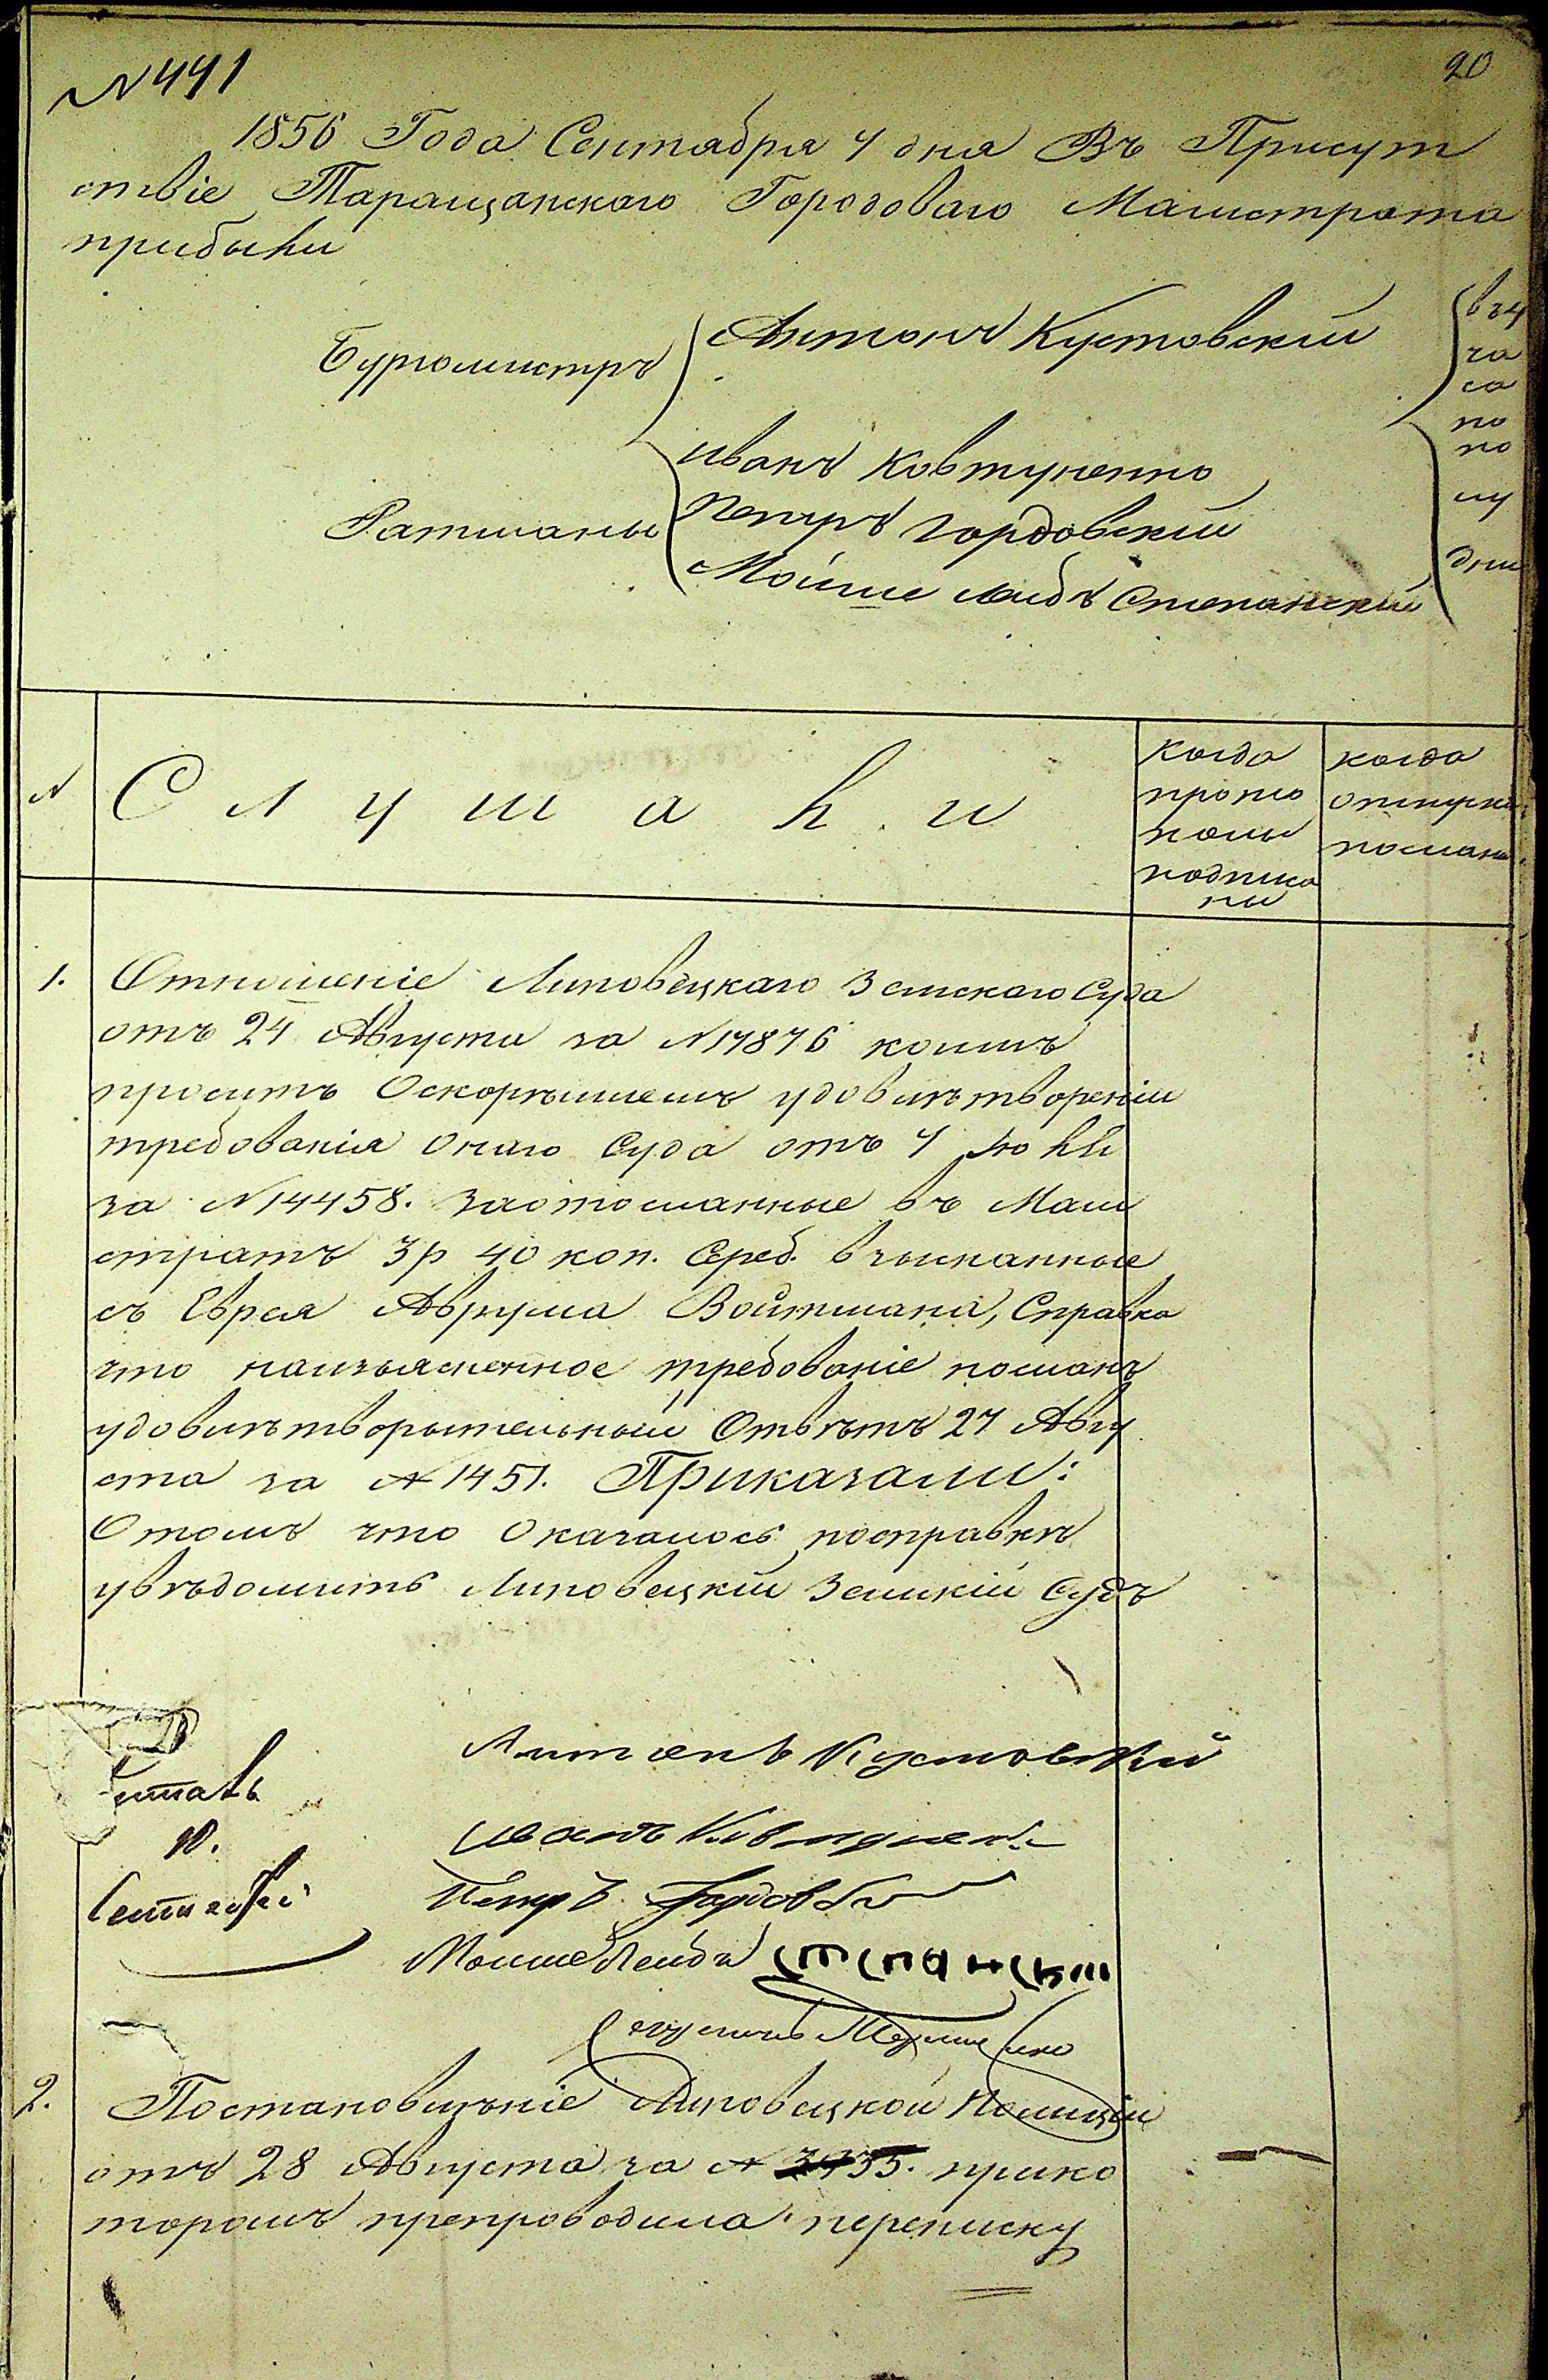 № 441
20
1856 Года Сентабря 4 дня Въ Присут
ствіе Таращанскаго Городоваго Магистрата
прибыли
Бургомистръ
Антонъ Кустовскій
Ратманы
иванъ Ковтуненко
Петръ Гордовскій
Мойше Лейбъ Степанскій
въ 4
ча
са
по
по
лу
дни
№
Слушали
когда
прото
колы
подписа
ны
когда
отпуски
посланы
1.
Отношеніе Липовецкаго Земскаго Суда
отъ 24 Августа за №17876 коимъ
проситъ Оскорѣишемъ удовлѣтвореніи
требованія онаго Суда отъ 4 Юля
за №14458. заотосланные въ Маги
стратъ 3 р 40 коп. Сереб. взысканные
съ Еврея Аврума Войтмана, Справка
что наизъясненное требованіе посланъ
удовлѣтворытельный Отвѣтъ 27 Авгу
ста за №1451. Приказали:
Отомъ что Оказалось посправкѣ
увѣдомить Липовецкій Земскій Судъ
Антонъ Кустовский
иванъ
Петръ
Мошеленба Степанский
2.
Постановлѣніе Липовецкой Полиціи
отъ 28 Августа за № 35. прико
торомъ препроводила переписку